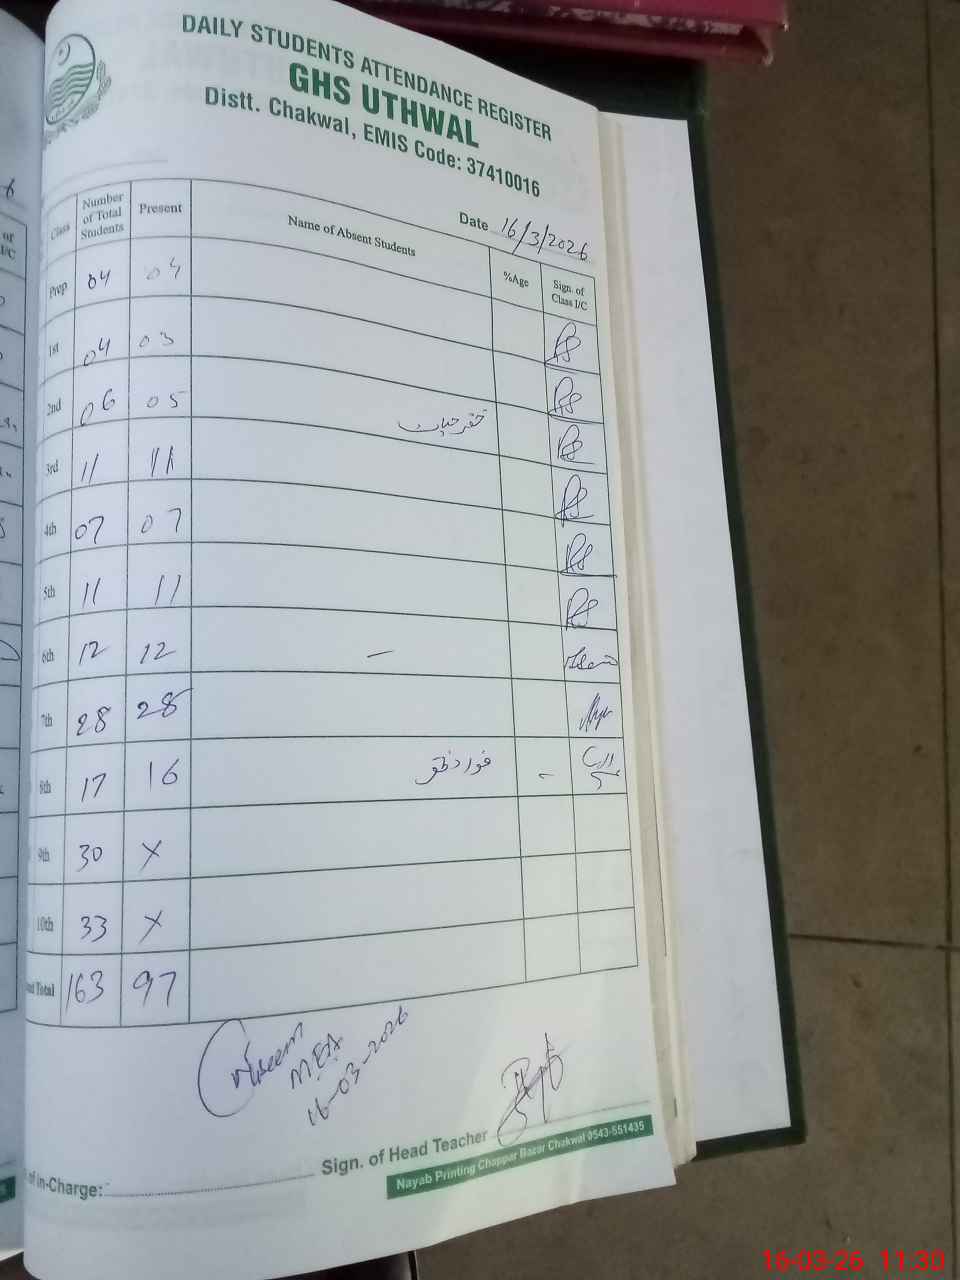 DAILY STUDENTS ATTENDANCE REGISTER
GHS UTHWAL
Distt. Chakwal, EMIS Code: 37410016
Date 16/3/2026
Class Number of Total Students Present Name of Absent Students %Age Sign. of Class I/C
Prep 04 04
1st 04 03
2nd 06 05 خضر حیات
3rd 11 11
4th 07 07
5th 11 11
6th 12 12 —
7th 28 28
8th 17 16 فواد –
9th 30 X
10th 33 X
Total 163 97
Waseem
MEA
16-03-2026
of in-Charge: Sign. of Head Teacher
Nayab Printing Chappar Bazar Chakwal 0543-551435
16-03-26 11:30